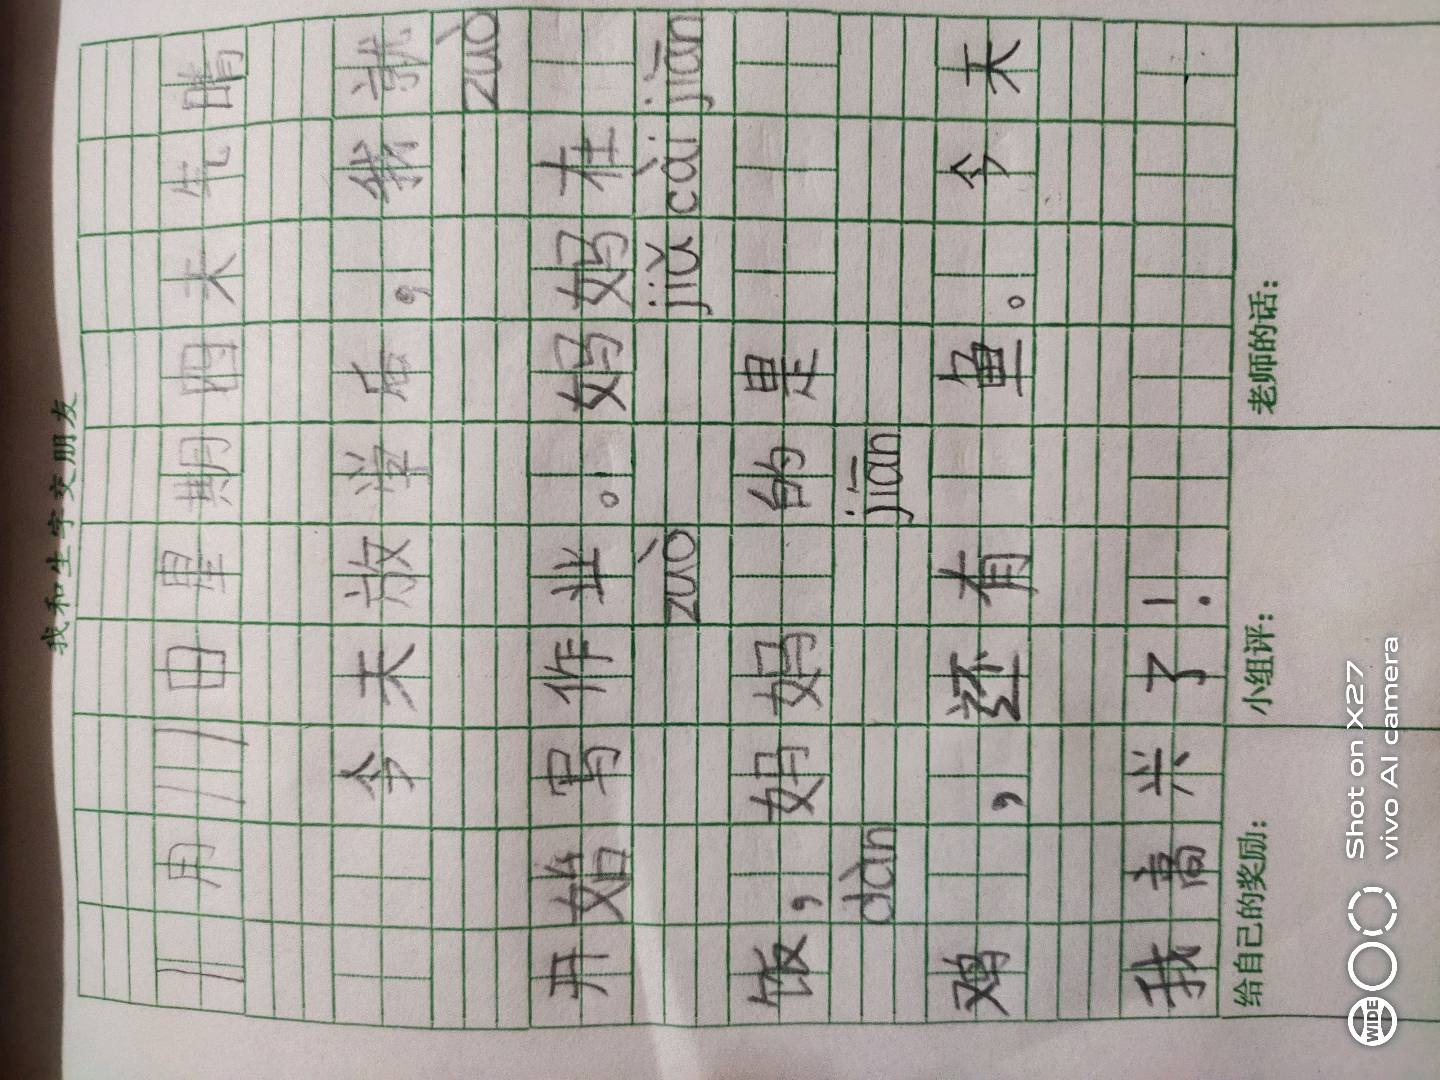 我和生字交朋友
11月11日星期四天气晴
今天放学后，我就
zuò
开始写作业。妈妈在
zuò jiǔ cài jiān
饭，妈妈的是
dàn jiān
鸡，还有鱼。今天
我高兴了！
给自己的奖励： 小组评： 老师的话：
WIDE
Shot on X27
vivo AI camera